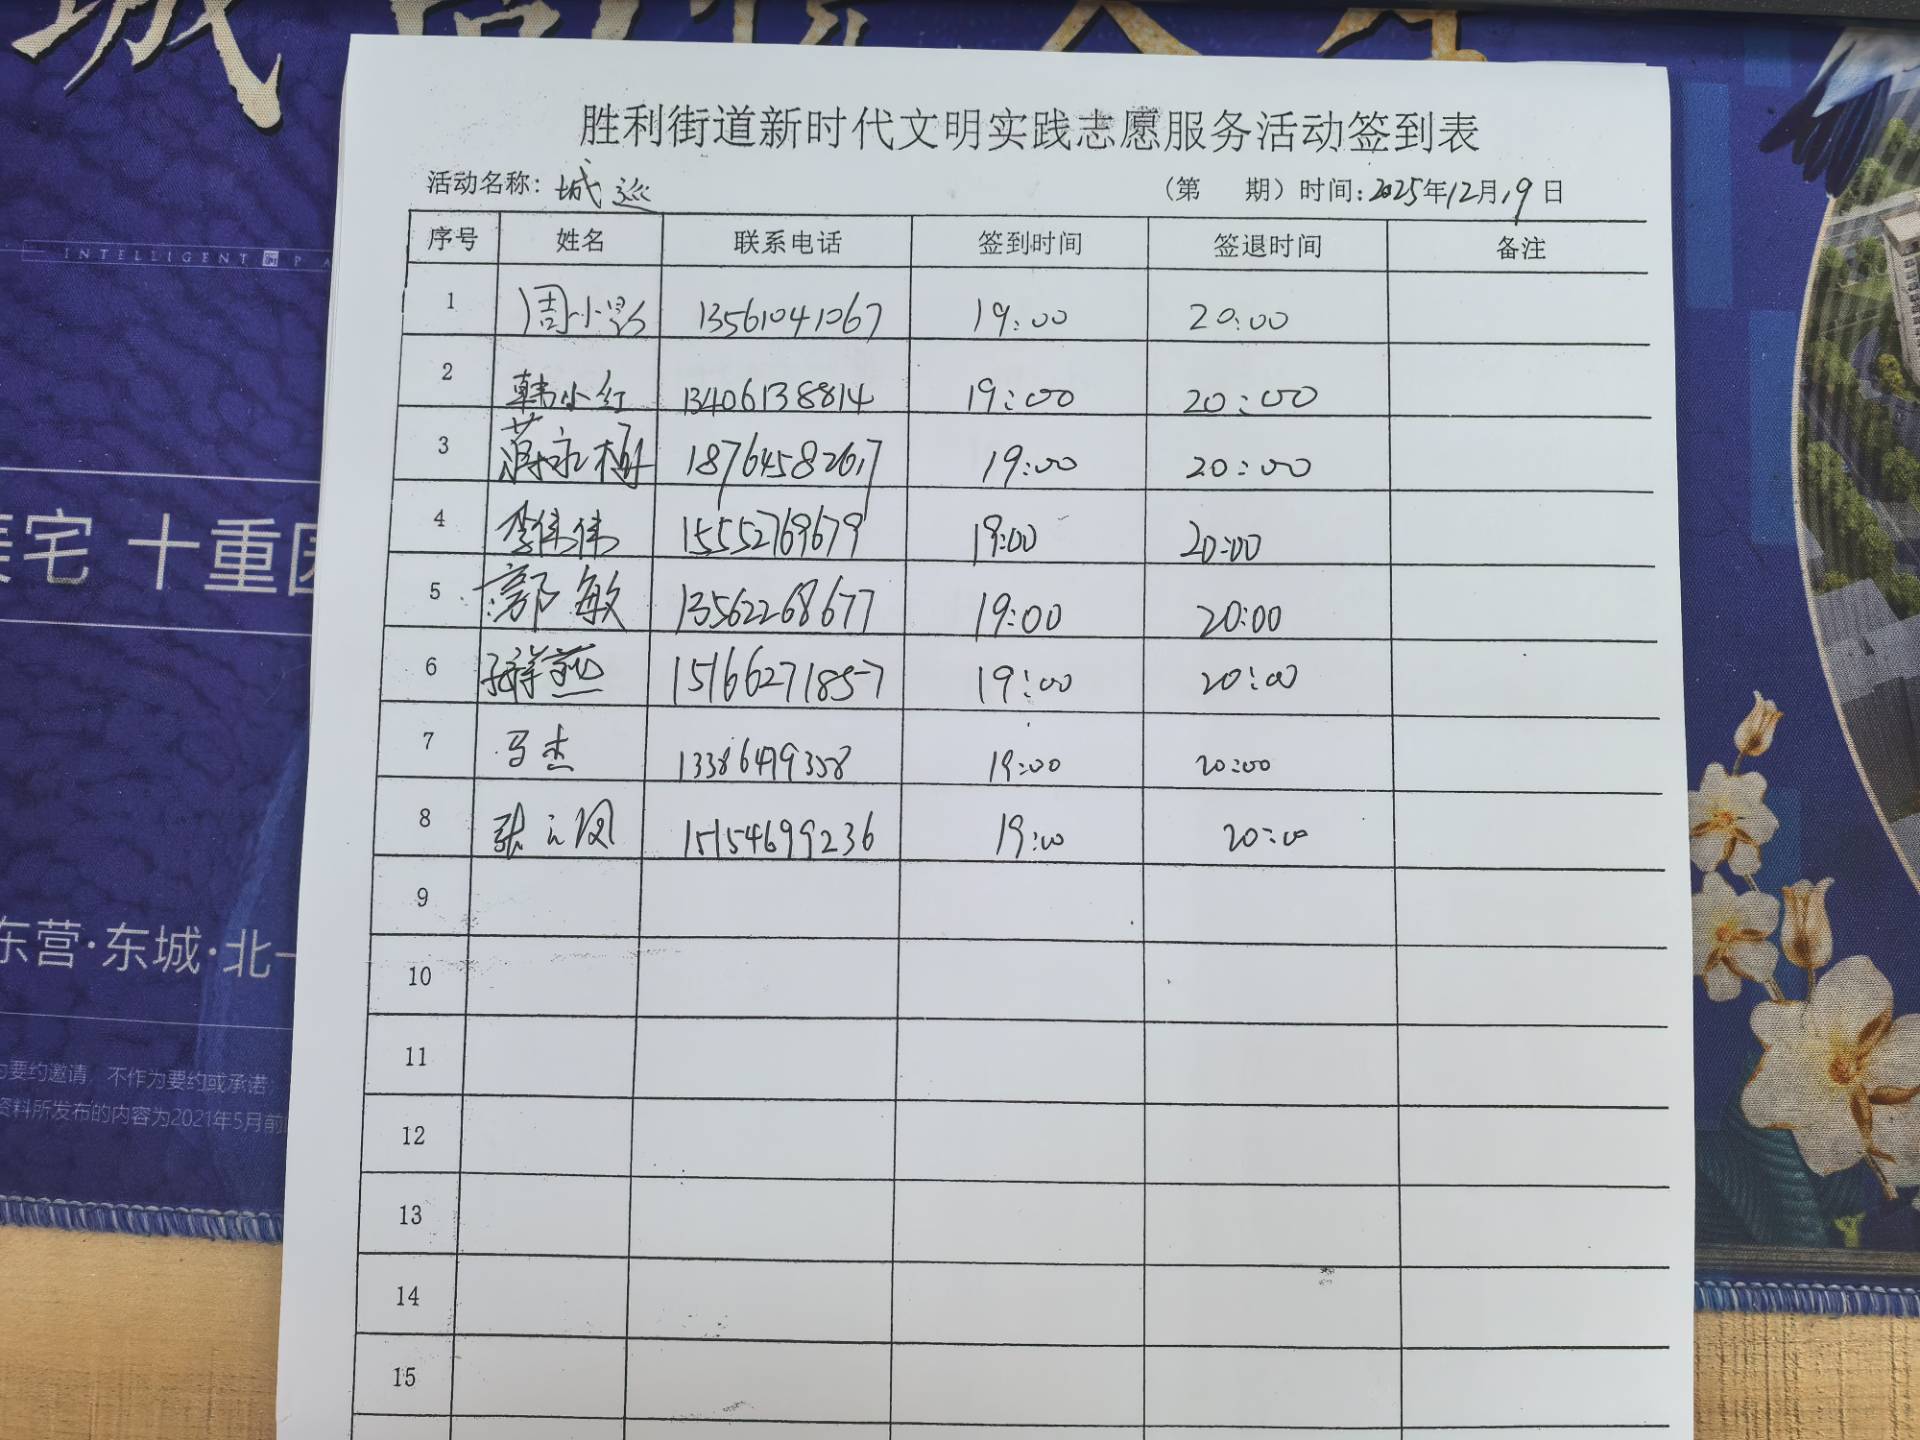 INTELLIGENT PA
宅 十重
东营·东城·北一
为要约邀请,不作为要约或承诺;
资料所发布的内容为2021年5月前
胜利街道新时代文明实践志愿服务活动签到表
活动名称: 城巡 (第 期) 时间: 2025年12月19日
序号 姓名 联系电话 签到时间 签退时间 备注
1 周小 13561041067 19:00 20:00
2 韩小红 13406138814 19:00 20:00
3 蒋永梅 18764582617 19:00 20:00
4 李伟伟 15552769679 19:00 20:00
5 郭敏 13562268677 19:00 20:00
6 燕 15166271857 19:00 20:00
7 马杰 13386479358 19:00 20:00
8 张 凤 15154699236 19:00 20:00
9
10
11
12
13
14
15